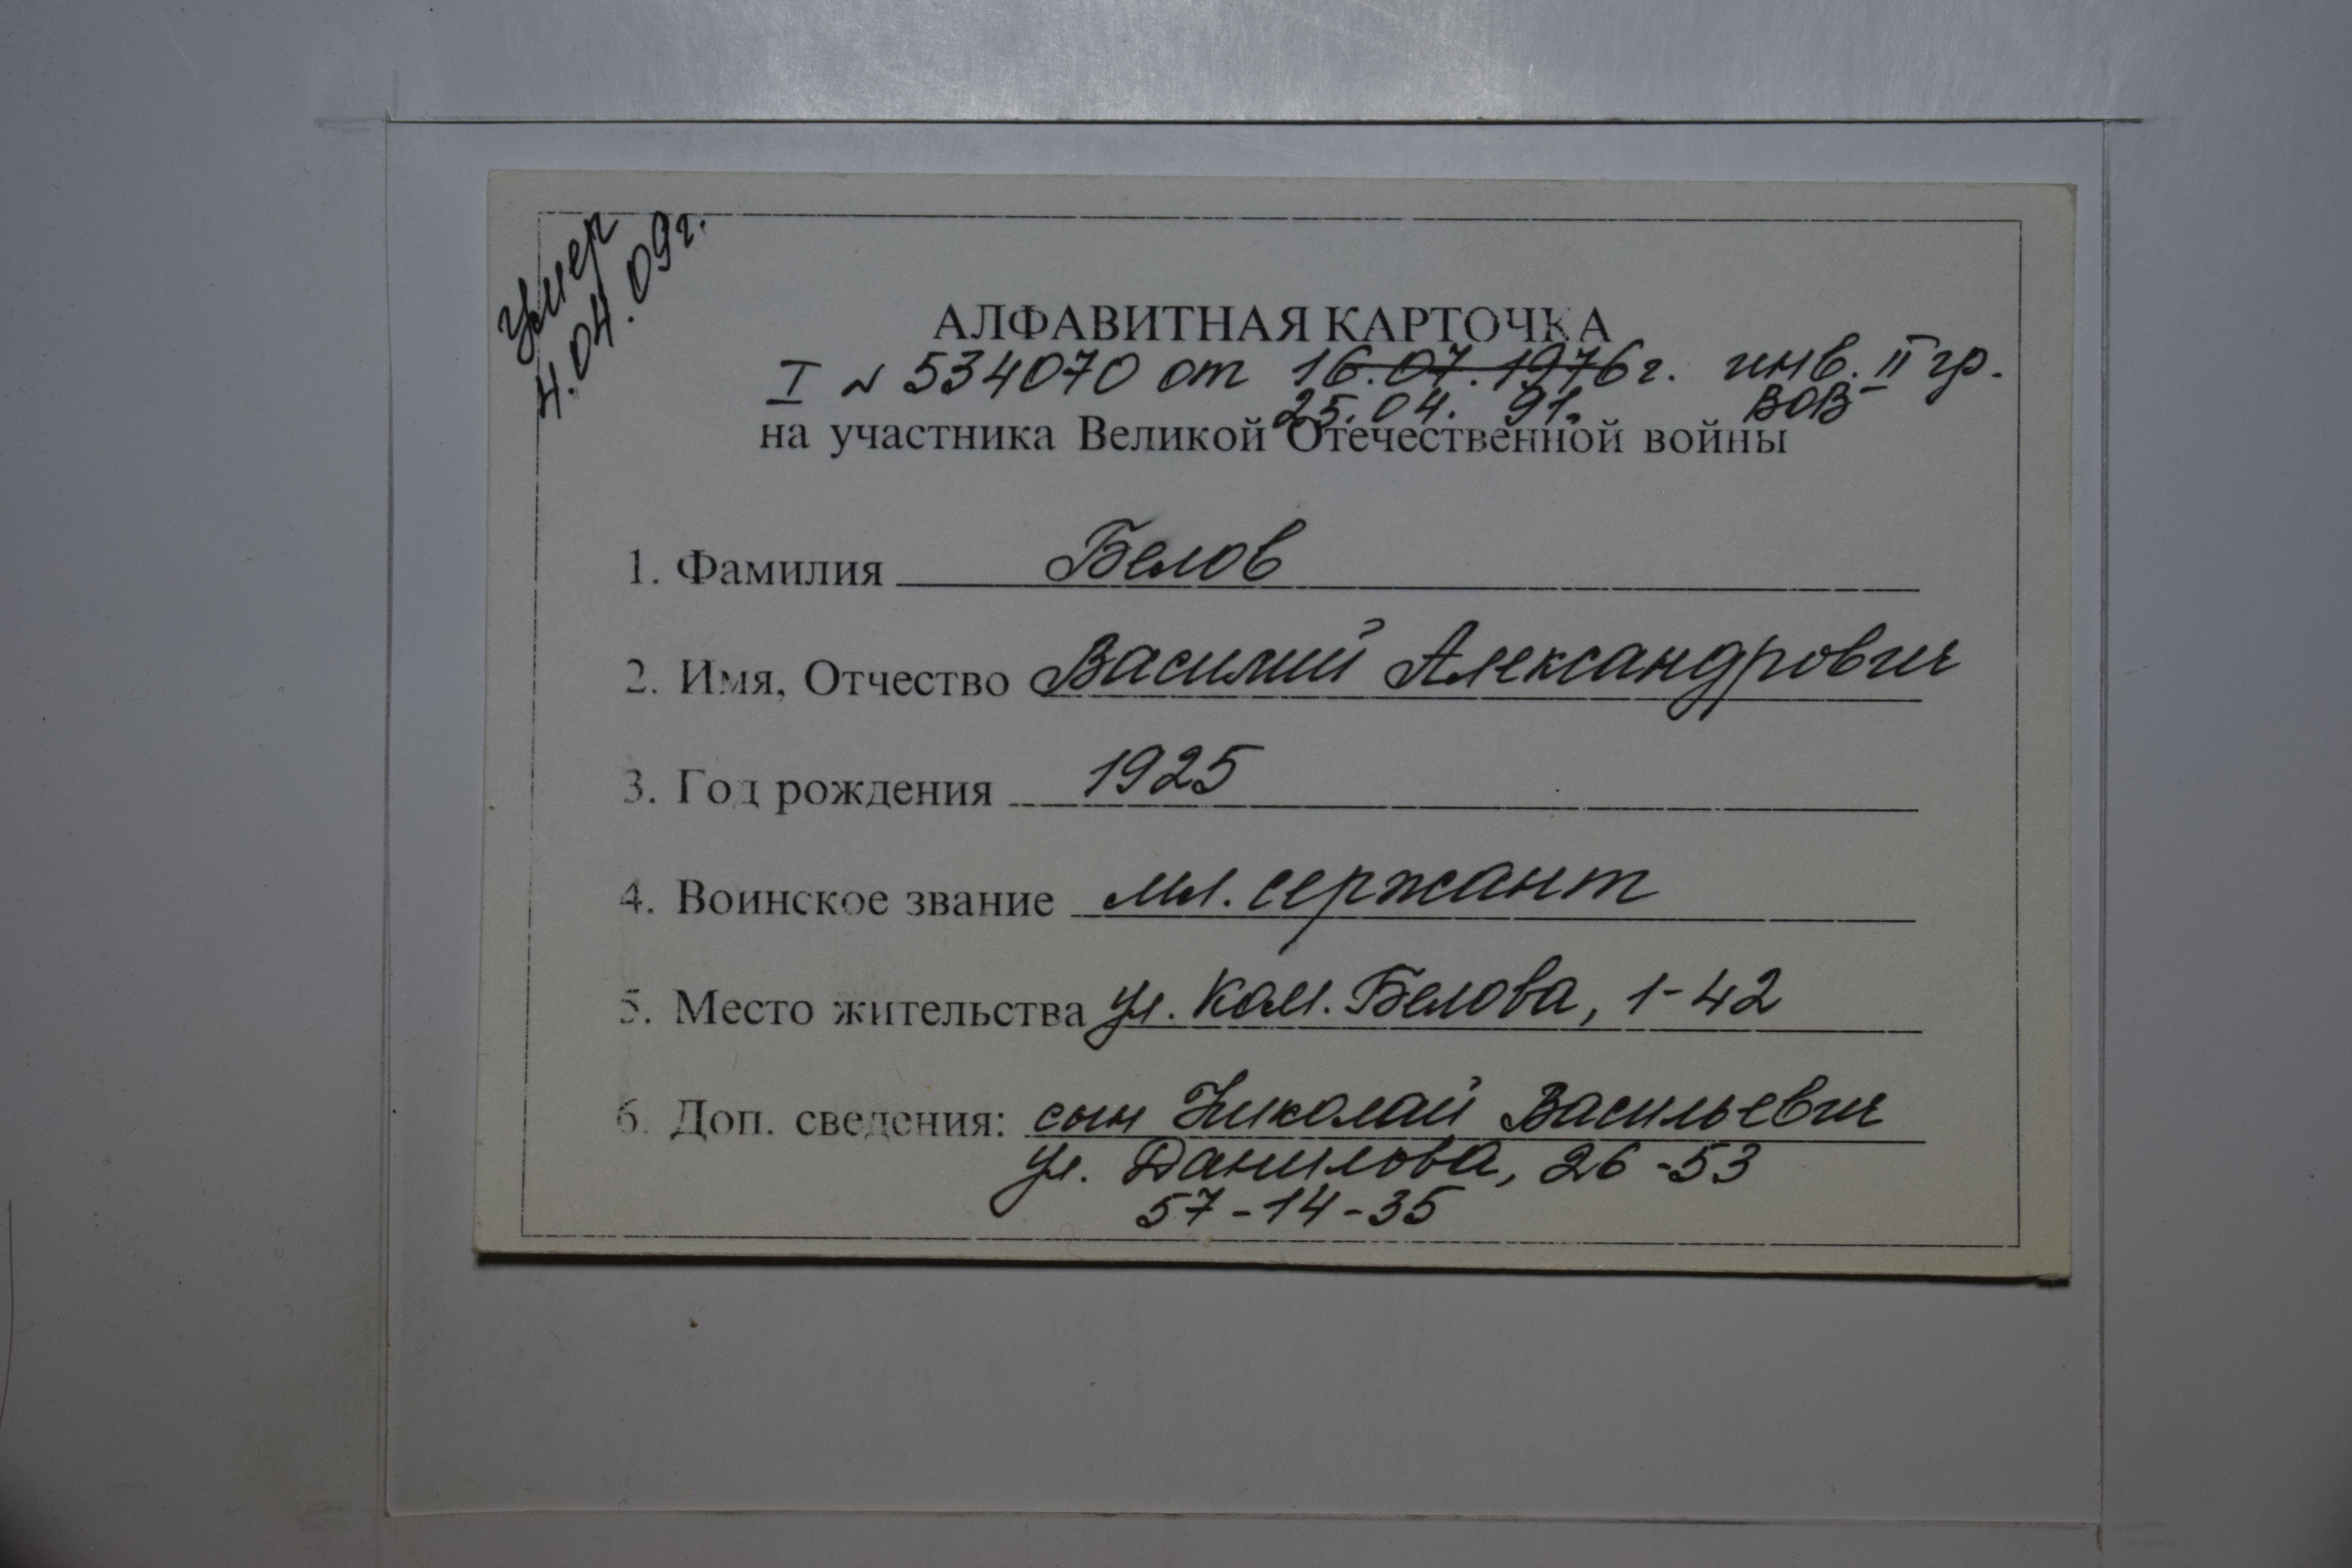 умер
4.04.09г.
АЛФАВИТНАЯ КАРТОЧКА
I N 534070 от 16.07.1976г. инв. II гр.
25.04. 91. ВОВ
на участника Великой Отечественной войны
1. Фамилия Белов
2. Имя, Отчество Василий Александрович
3. Год рождения 1925
4. Воинское звание мл. сержант
5. Место жительства ул. Кам. Белова, 1-42
6. Доп. сведения: сын Николай Васильевич
ул. Данилова, 26-53
57-14-35